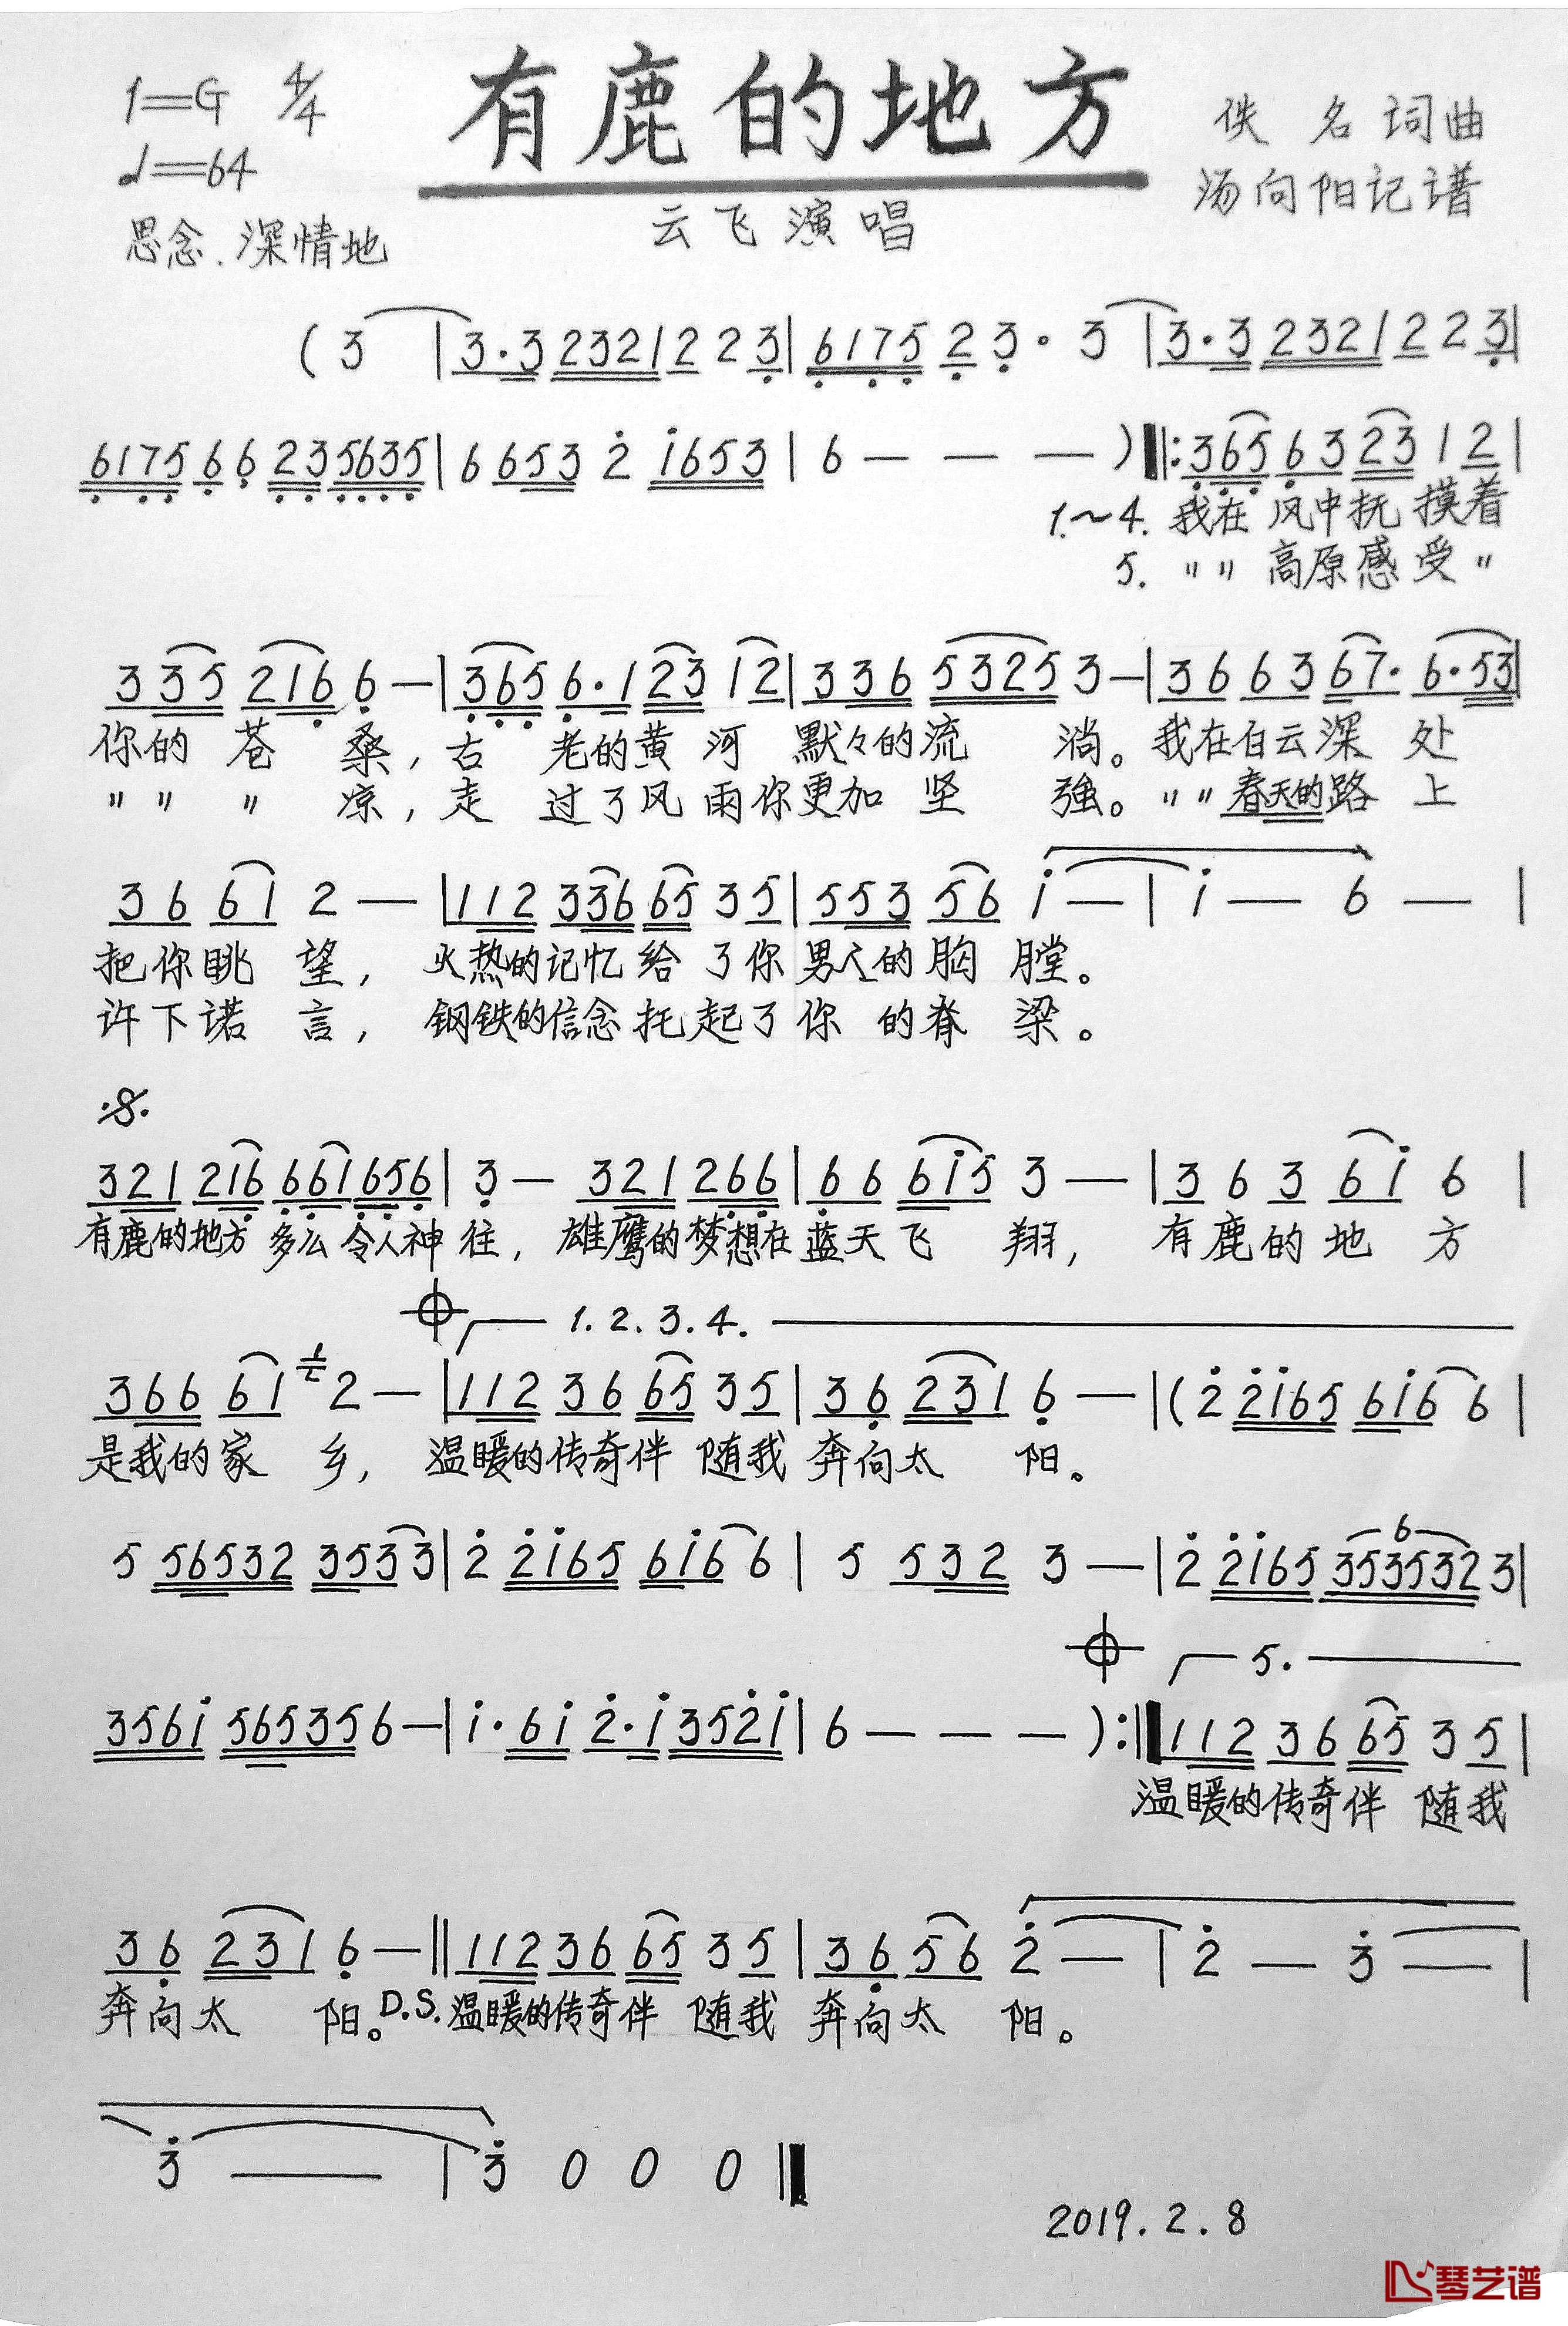 1=G 4/4
有鹿的地方
佚名词曲
♩=64
汤向阳记谱
云飞演唱
思念.深情地
(3 | 3·3 2321 2 2 3 | 6175 2 3· 3 | 3·3 2321 2 2 3 |
6175 6 6 23 5635 | 6 653 2 1653 | 6 — — — ) ‖: 365 6 3 23 1 2 |
1.～4. 我在风中抚摸着
5. 〃〃高原感受〃
3 35 216 6 — | 365 6·1 23 1 2 | 3 36 5325 3 — | 3 6 6 3 67· 6·53 |
你的苍桑,古老的黄河默々的流淌。我在白云深处
〃〃〃凉,走过了风雨你更加坚强。〃〃春天的路上
3 6 6 1 2 — | 112 336 65 3 5 | 553 56 1 — | 1 — 6 — |
把你眺望,火热的记忆给了你男人的胸膛。
许下诺言,钢铁的信念托起了你的脊梁。
321 216 661 656 | 3 — 321 266 | 6 6 615 3 — | 3 6 3 6 1 6 |
有鹿的地方多么令人神往,雄鹰的梦想在蓝天飞翔,有鹿的地方
1.2.3.4.
366 61 2 — | 112 36 65 3 5 | 36 231 6 — | (2 2165 616 6 |
是我的家乡,温暖的传奇伴随我奔向太阳。
5 56532 353 3 | 2 2165 616 6 | 5 532 3 — | 2 2165 353532 3 |
6
5.
3561 565356 — | 1·61 2·1 3521 | 6 — — — ) :‖ 112 36 65 3 5 |
温暖的传奇伴随我
36 231 6 — ‖ 112 36 65 3 5 | 36 56 2 — | 2 — 3 — |
奔向太阳。D.S.温暖的传奇伴随我奔向太阳。
3 — | 3 0 0 0 ‖
2019.2.8
琴艺谱